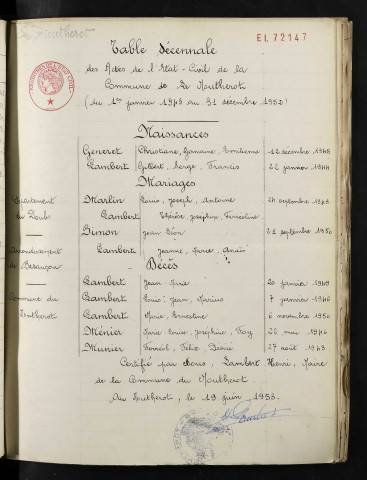 Le Moutherot
EI. 72147
Table Décennale
des Actes de l'Etat-Civil de la
Commune de Le Moutherot
(du 1er janvier 1943 au 31 décembre 1952)
Naissances
Generet Christiane, Germaine, Emilienne 12 décembre 1946
Lambert Gilbert, Serge, Francis 22 janvier 1944
Mariages
Département du Doubs
Marlin Louis, Joseph, Antoine 24 septembre 1943
Lambert Thérèse, Joséphine, Ernestine
Simon Jean Léon 23 septembre 1950
Lambert Jeanne, Marie, Anaïs
Arrondissement de Besançon
Décès
Lambert Jean-Marie 20 janvier 1949
Commune du Moutherot
Lambert Louis, Jean, Marius 7 janvier 1946
Lambert Marie, Ernestine 6 novembre 1950
Ménier Marie, Louise, Joséphine 26 mai 1946
Munier Ferréol, Félix, Désiré 27 août 1943
Certifié par Nous, Lambert Henri, Maire
de la Commune du Moutherot
Au Moutherot, le 19 juin 1953.